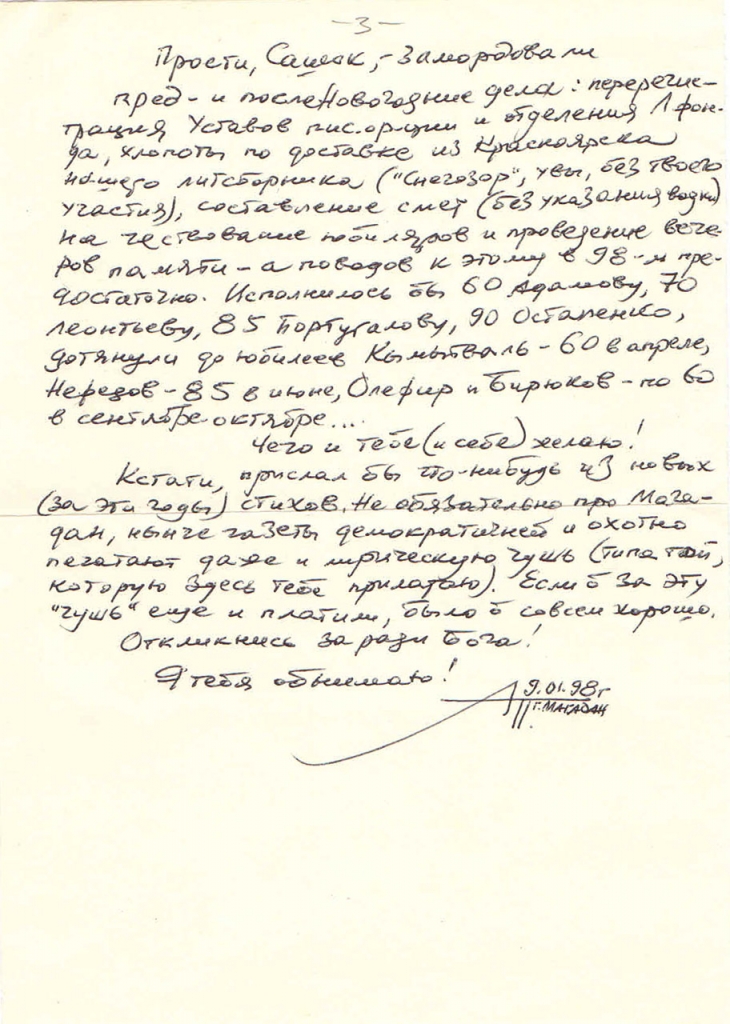 -3-
Прости, Сашок, - замордовали
пред- и посленовогодние дела: перерегис-
трация Уставов пис.орг-ции и отделения Литфон-
да, хлопоты по доставке из Красноярска
нашего литсборника ("Снегозор", увы, без твоего
участия), составление смет (без указания водки)
на чествование юбиляров и проведение вече-
ров памяти - а поводов к этому в 98-м пре-
достаточно. Исполнилось бы 60 Адамову, 70
Леонтьеву, 85 Португалову, 90 Остапенко,
дотянули до юбилеев Кымытваль - 60 в апреле,
Нефедов - 85 в июне, Олефир и Бирюков - по 60
в сентябре-октябре...
Чего и тебе (и себе) желаю!
Кстати, прислал бы что-нибудь из новых
(за эти годы) стихов. Не обязательно про Мага-
дан, нынче газеты демократичней и охотно
печатают даже и лирическую чушь (типа той,
которую здесь тебе прилагаю). Если б за эту
"чушь" еще и платили, было б совсем хорошо.
Откликнись за ради Бога!
Я тебя обнимаю!
9.01.98г
г. МАГАДАН